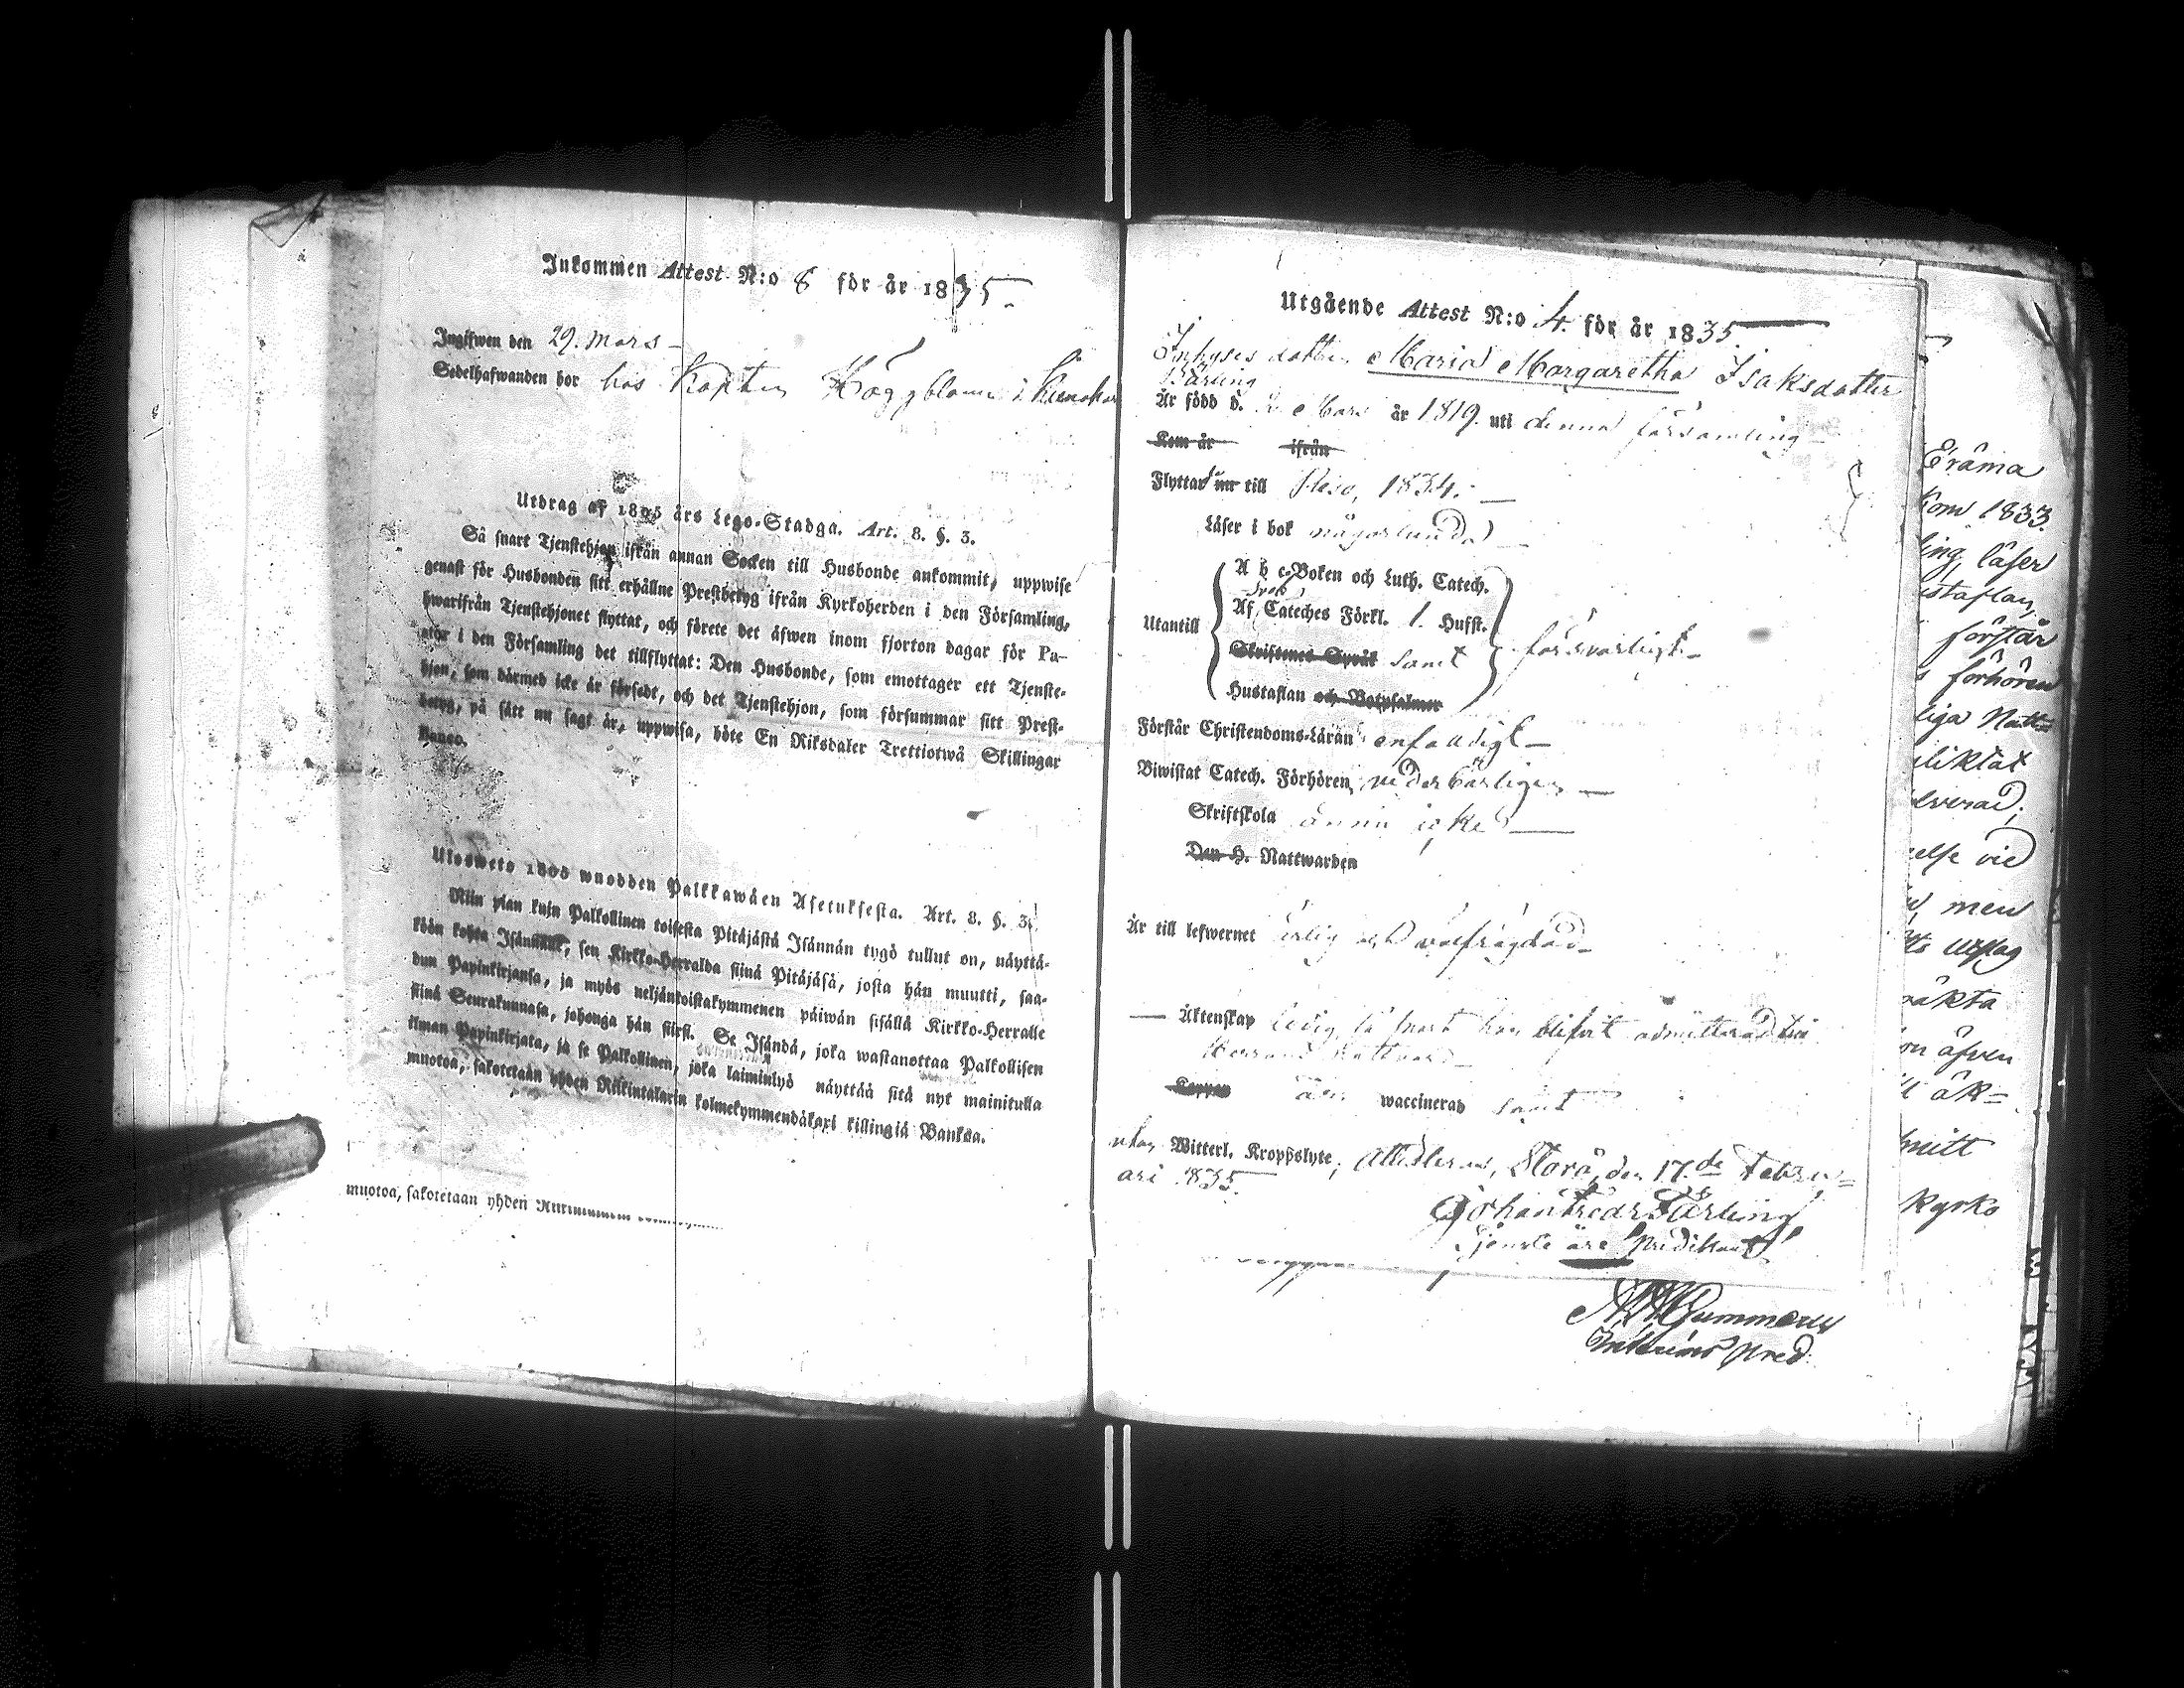 Inkommen Attest N:o 8 för år 1835.
Ingifwen den 29. Mars
Sedelhafwanden bor hos Kapten Häggblom i
Utdrag af 1805 års Lego-Stadga. Art. 8. §. 3.
Så snart Tjenstehjon ifrån annan Socken till Husbonde ankommit, uppwise
genast för Husbonden sitt erhållne Prestbetyg ifrån Kyrkoherden i den Församling,
hwarifrån Tjenstehjonet flyttat, och förete det äfwen inom fjorton dagar för Pa-
stor i den Församling det tillflyttat: Den Husbonde, som emottager ett Tjenste-
hjon, som därmed icke är försedt, och det Tjenstehjon, som försummar sitt Prest-
betyg, på sätt nu sagt är, uppwisa, böte En Riksdaler Trettiotwå Skillingar
Banco.
Ulosweto 1805 wuodden Palkkawäen Asetuksesta. Art. 8. §. 3.
Niin pian kuin Palkollinen toisesta Pitäjästä Isännän tygö tullut on, näyttä-
köön kohta Isännälle, sen Kirkko-Herralda siinä Pitäjäsä, josta hän muutti, saa-
dun Papinkirjansa, ja myös neljänkoistakymmenen päiwän sisällä Kirkko-Herralle
siinä Seurakunnasa, johonga hän siirsi. Se Isändä, joka wastanottaa Palkollisen
ilman Papinkirjata, ja se Palkollinen, joka laiminlyö näyttää sitä nyt mainitulla
muotoa, sakotetaan yhden Riikintalarin kolmekymmendäkaxi killingiä Bankoa.
muotoa, sakotetaan yhden
Utgående Attest N:o 4. för år 1835.
Inhyses dotter Maria Margaretha Isaksdotter
Är född d. Mars år 1819 uti denna församling
Kom år ifrån
Flyttade nu till 1834.
Läser i bok någorlunda
A b c-Boken och Luth. Catech.
Af Cateches Förkl. 1. Husst.
Utantill
Skriftenes Språk samt försvarligt
Hustaflan och Botpsalmer
Förstår Christendoms-Läran enfaldigt
Biwistat Catech. Förhören vederbörligen
Skriftskola ännu icke
Den H. Nattwarden
Är till lefwernet ärlig och välfrägdad
Äktenskap ledig, så snart hon blifvit admitterad till
Herrans Nattvard
Koppor är waccinerad samt
utan Witterl. Kroppslyte; Attesteras, Storå, den 17.de Febru=
ari 1835.
Johan Fredr Bärling
Tjenste Predikant
Gummerus
Erâma
Kom 1833.
läser
förstår
förhören
Natt=
men
äfven
Kyrko